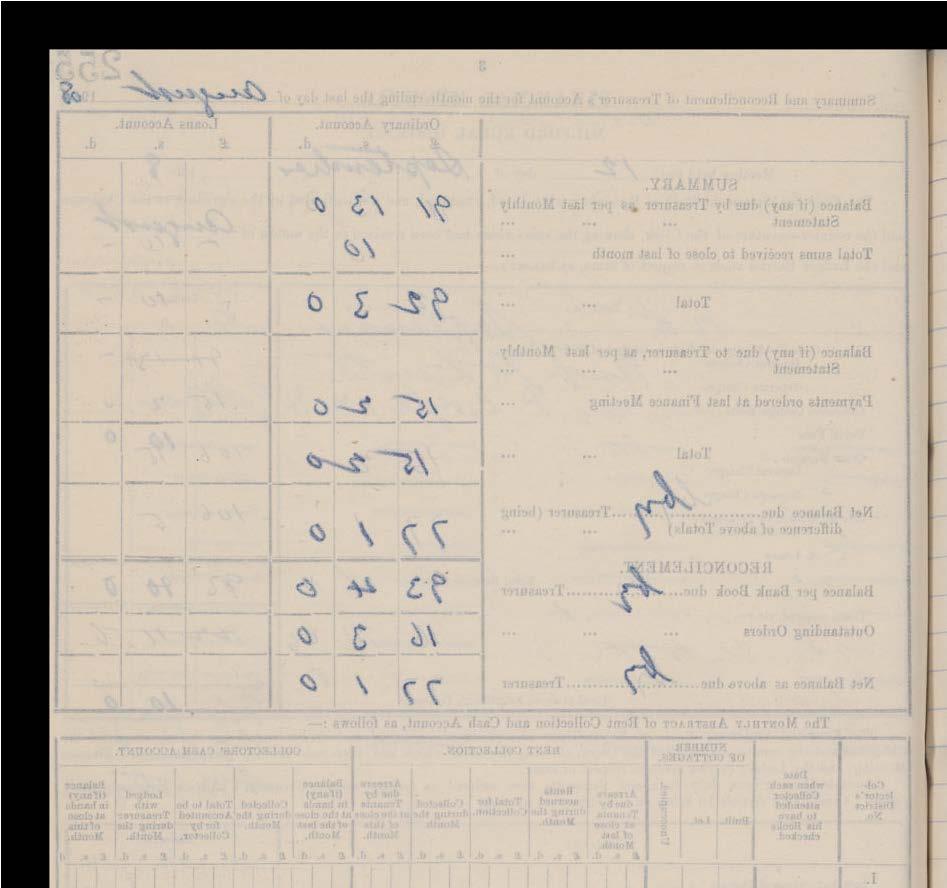 255
3
Summary and Reconcilement of Treasurer's Account for the month ending the last day of August 190 8
Ordinary Account. Loans Account.
£ s. d. £ s. d.
SUMMARY.
Balance (if any) due by Treasurer as per last Monthly
Statement ... ... ... 91 13 0
Total sums received to close of last month ... 10
Total ... ... 92 3 0
Balance (if any) due to Treasurer, as per last Monthly
Statement ... ... ...
Payments ordered at last Finance Meeting ... 15 2 0
Total ... ... 15 2 0
Net Balance due by Treasurer (being
difference of above Totals) ... ... 77 1 0
RECONCILEMENT.
Balance per Bank Book due by Treasurer 93 4 0
Outstanding Orders ... ... ... 16 3 0
Net Balance as above due by Treasurer 77 1 0
The MONTHLY ABSTRACT of Rent Collection and Cash Account, as follows :—
Col-
lector's
District
No.
Date
when each
Collector
attended
to have
his Books
checked
NUMBER
OF COTTAGES.
Built.
Let.
RENT COLLECTION.
Arrears
due by
Tenants
at close
of last
Month.
Rents
accrued
during the
Month.
Total for
Collection.
Collected
during the
Month.
Arrears
due by
Tenants
at the close
of this
Month.
COLLECTORS' CASH ACCOUNT.
Balance
(if any)
in hands
at the close
of the last
Month.
Collected
during the
Month.
Total to be
Accounted
for by
Collector.
Lodged
with
Treasurer
during the
Month.
Balance
(if any)
in hands
at close
of this
Month.
£ s. d. £ s. d. £ s. d. £ s. d. £ s. d. £ s. d. £ s. d. £ s. d. £ s. d. £ s. d.
1.